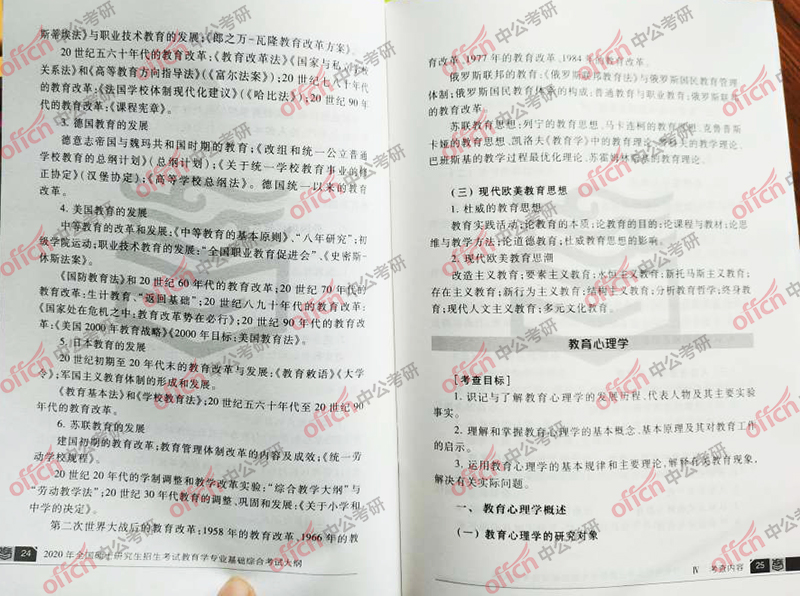 斯蒂埃法》与职业技术教育的发展;《郎之万-瓦隆教育改革方案》。
20世纪五六十年代的教育改革:《教育改革法》《国家与私立学校
关系法》和《高等教育方向指导法》(《富尔法案》);20世纪七八十年代
的教育改革:《法国学校体制现代化建议》(《哈比法》);20世纪90年
代的教育改革:《课程宪章》。
3. 德国教育的发展
德意志帝国与魏玛共和国时期的教育;《改组和统一公立普通
学校教育的总纲计划》(总纲计划);《关于统一学校教育事业的修
正协定》(汉堡协定);《高等学校总纲法》。德国统一以来的教育
改革。
4. 美国教育的发展
中等教育的改革和发展:《中等教育的基本原则》、“八年研究”;初
级学院运动;职业技术教育的发展:“全国职业教育促进会”、《史密斯-
休斯法案》。
《国防教育法》和20世纪60年代的教育改革;20世纪70年代的
教育改革:生计教育、“返回基础”;20世纪八九十年代的教育改革:
《国家处在危机之中:教育改革势在必行》;20世纪90年代的教育改
革:《美国2000年教育战略》《2000年目标:美国教育法》。
5. 日本教育的发展
20世纪初期至20年代末的教育改革与发展。《教育敕语》《大学
令》;军国主义教育体制的形成和发展。
《教育基本法》和《学校教育法》;20世纪五六十年代至20世纪90
年代的教育改革。
6. 苏联教育的发展
建国初期的教育改革:教育管理体制改革的内容及成效;《统一劳
动学校规程》。
20世纪20年代的学制调整和教学改革实验:“综合教学大纲”与
“劳动教学法”;20世纪30年代教育的调整、巩固和发展:《关于小学和
中学的决定》。
第二次世界大战后的教育改革:1958年的教育改革、1966年的教
24 2020年全国硕士研究生招生考试教育学专业基础综合考试大纲
育改革、1977年的教育改革、1984年的教育改革。
俄罗斯联邦的教育:《俄罗斯联邦教育法》与俄罗斯国民教育管理
体制;俄罗斯国民教育体系的构成;普通教育与职业教育;俄罗斯联邦
的教育改革。
苏联教育思想:列宁的教育思想、马卡连柯的教育思想、克鲁普斯
卡娅的教育思想、凯洛夫《教育学》中的教育理论、赞科夫的教学理论、
巴班斯基的教学过程最优化理论、苏霍姆林斯基的教育理论。
(三) 现代欧美教育思想
1. 杜威的教育思想
教育实践活动;论教育的本质;论教育的目的;论课程与教材;论思
维与教学方法;论道德教育;杜威教育思想的影响。
2. 现代欧美教育思潮
改造主义教育;要素主义教育;永恒主义教育;新托马斯主义教育;
存在主义教育;新行为主义教育;结构主义教育;分析教育哲学;终身教
育;现代人文主义教育;多元文化教育。
教育心理学
[考查目标]
1. 识记与了解教育心理学的发展历程、代表人物及其主要实验
事实。
2. 理解和掌握教育心理学的基本概念、基本原理及其对教育工作
的启示。
3. 运用教育心理学的基本规律和主要理论,解释有关教育现象,
解决有关实际问题。
一、教育心理学概述
(一) 教育心理学的研究对象
Ⅳ 考查内容 25
offcn 中公考研